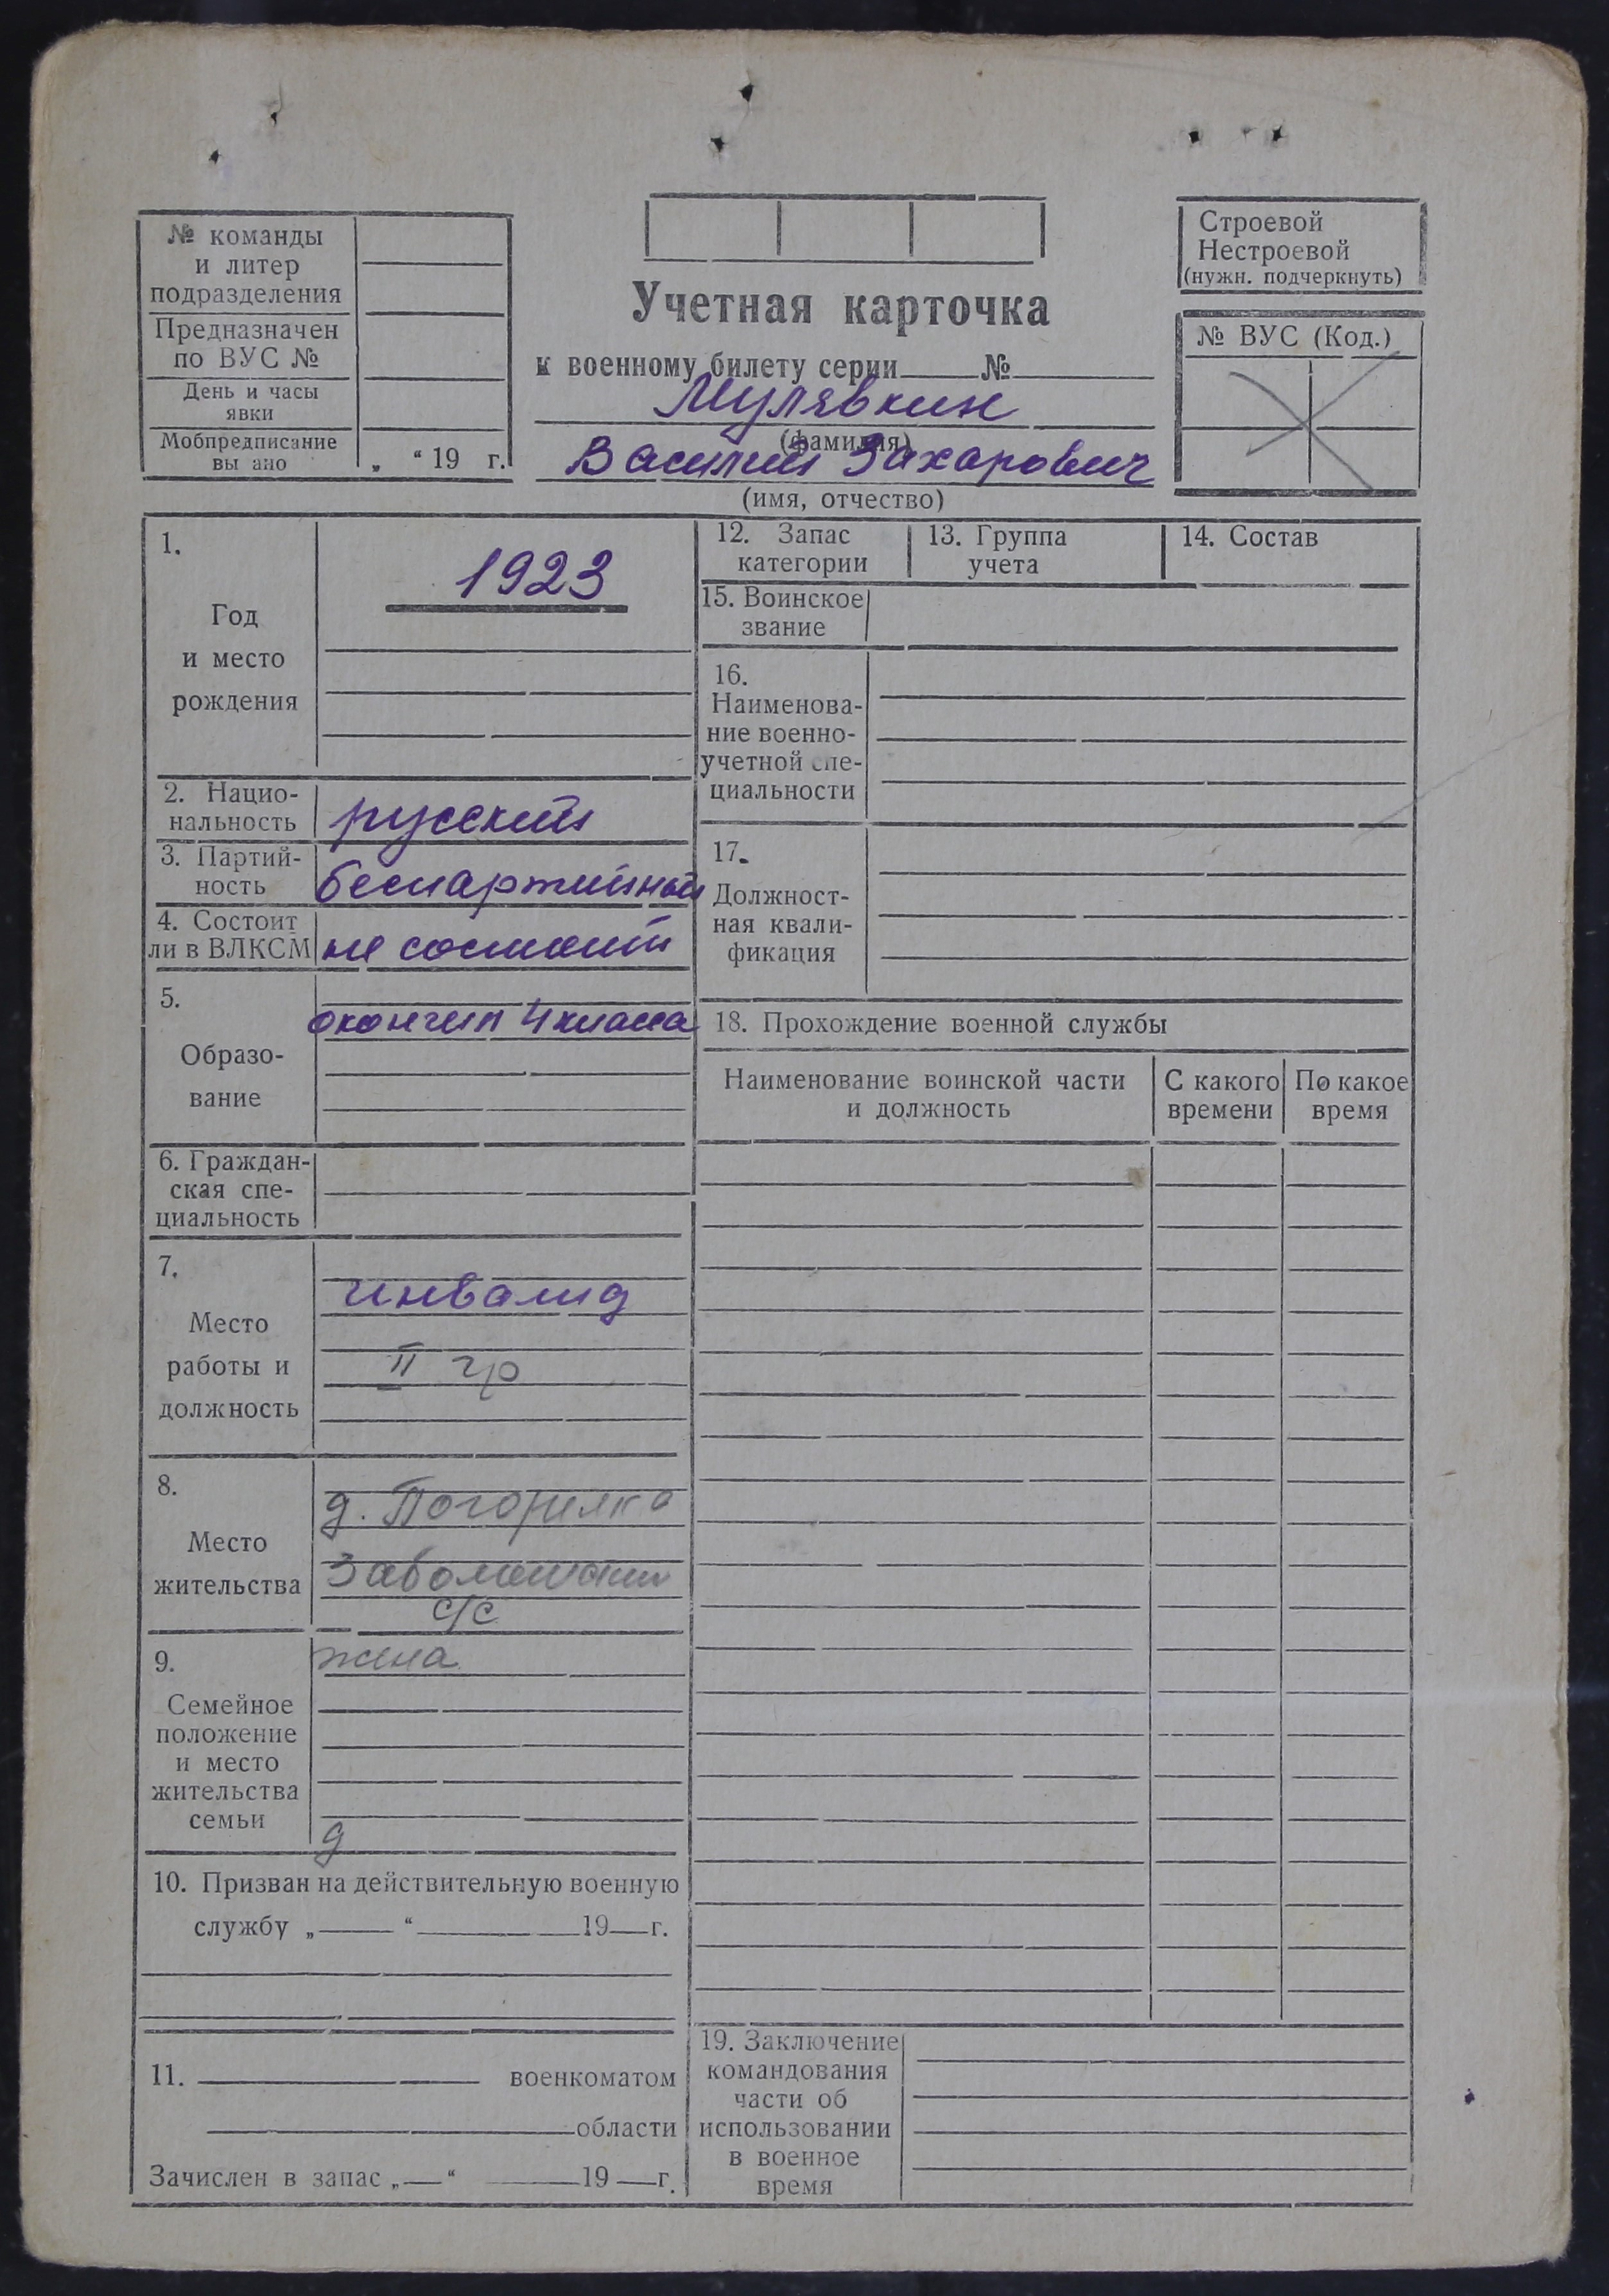 № команды
и литер
подразделения
Предназначен
по ВУС №
День и часы
явки
Мобпредписание
вы ано
„ “ 19 г.
Учетная карточка
к военному билету серии №
Мулявкин
(фамилия)
Василий Захарович
(имя, отчество)
Строевой
Нестроевой
(нужн. подчеркнуть)
№ ВУС (Код.)
1.
Год
и место
рождения
1923
2. Нацио-
нальность
русский
3. Партий-
ность
беспартийный
4. Состоит
ли в ВЛКСМ
не состоит
5.
Образо-
вание
окончил 4 класса
6. Граждан-
ская спе-
циальность
7.
Место
работы и
должность
инвалид
II гр
8.
Место
жительства
д. Погорелка
с/с
9.
Семейное
положение
и место
жительства
семьи
жена
д
10. Призван на действительную военную
службу „ “ 19 г.
11. военкоматом
области
Зачислен в запас „ “ 19 г.
12. Запас
категории
13. Группа
учета
14. Состав
15. Воинское
звание
16.
Наименова-
ние военно-
учетной спе-
циальности
17.
Должност-
ная квали-
фикация
18. Прохождение военной службы
Наименование воинской части
и должность
С какого
времени
По какое
время
19. Заключение
командования
части об
использовании
в военное
время